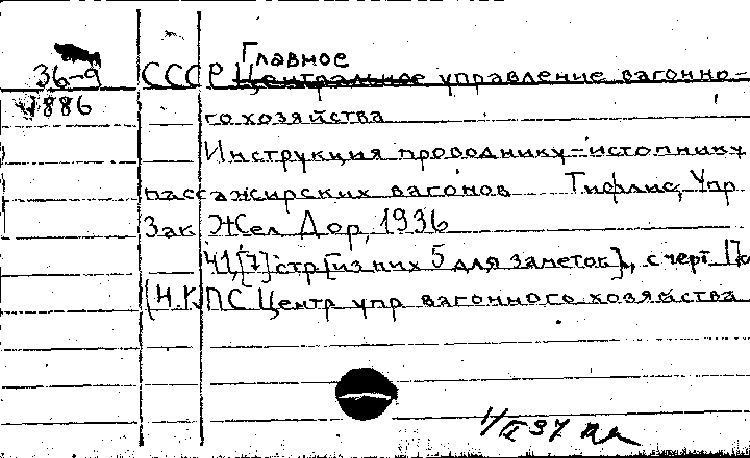 Главное
36-9 СССР Центральное управление вагонно-
1886 го хозяйства
Инструкция проводнику-истопнику
пассажирских вагонов Тифлис, Упр
Зак Жел Дор, 1936
41,[7] стр [из них 5 для заметок], с черт
(Н.К.П.С. Центр упр вагонного хозяйства